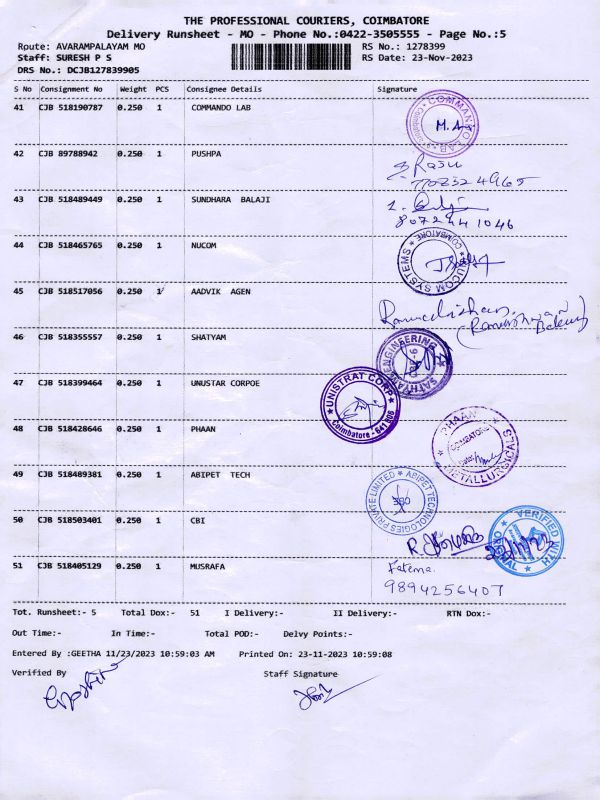 THE PROFESSIONAL COURIERS, COIMBATORE
Delivery Runsheet - MO - Phone No.:0422-3505555 - Page No.:5
Route: AVARAMPALAYAM MO RS No.: 1278399
Staff: SURESH P S RS Date: 23-Nov-2023
DRS No.: DCJB127839905
S No Consignment No Weight PCS Consignee Details Signature
41 CJB 518190787 0.250 1 COMMANDO LAB
COMMANDO LAB
42 CJB 89788942 0.250 1 PUSHPA
Rasu
7708324965
43 CJB 518489449 0.250 1 SUNDHARA BALAJI
8072441046
44 CJB 518465765 0.250 1 NUCOM
NUCOM SYSTEMS COIMBATORE
45 CJB 518517056 0.250 1 AADVIK AGEN
46 CJB 518355557 0.250 1 SHATYAM
SATHYAM ENGINEERING
47 CJB 518399464 0.250 1 UNUSTAR CORPOE
UNISTRAT CORP
Coimbatore - 641 006
48 CJB 518428646 0.250 1 PHAAN
PHAAN METALLURGICALS
COIMBATORE
49 CJB 518489381 0.250 1 ABIPET TECH
ABIPET TECHNOLOGIES PRIVATE LIMITED
CBE
50 CJB 518503401 0.250 1 CBI
VERIFIED WITH ORIGINAL
51 CJB 518405129 0.250 1 MUSRAFA
Fatema
9894256407
Tot. Runsheet:- 5 Total Dox:- 51 I Delivery:- II Delivery:- RTN Dox:-
Out Time:- In Time:- Total POD:- Delvy Points:-
Entered By :GEETHA 11/23/2023 10:59:03 AM Printed On: 23-11-2023 10:59:08
Verified By Staff Signature